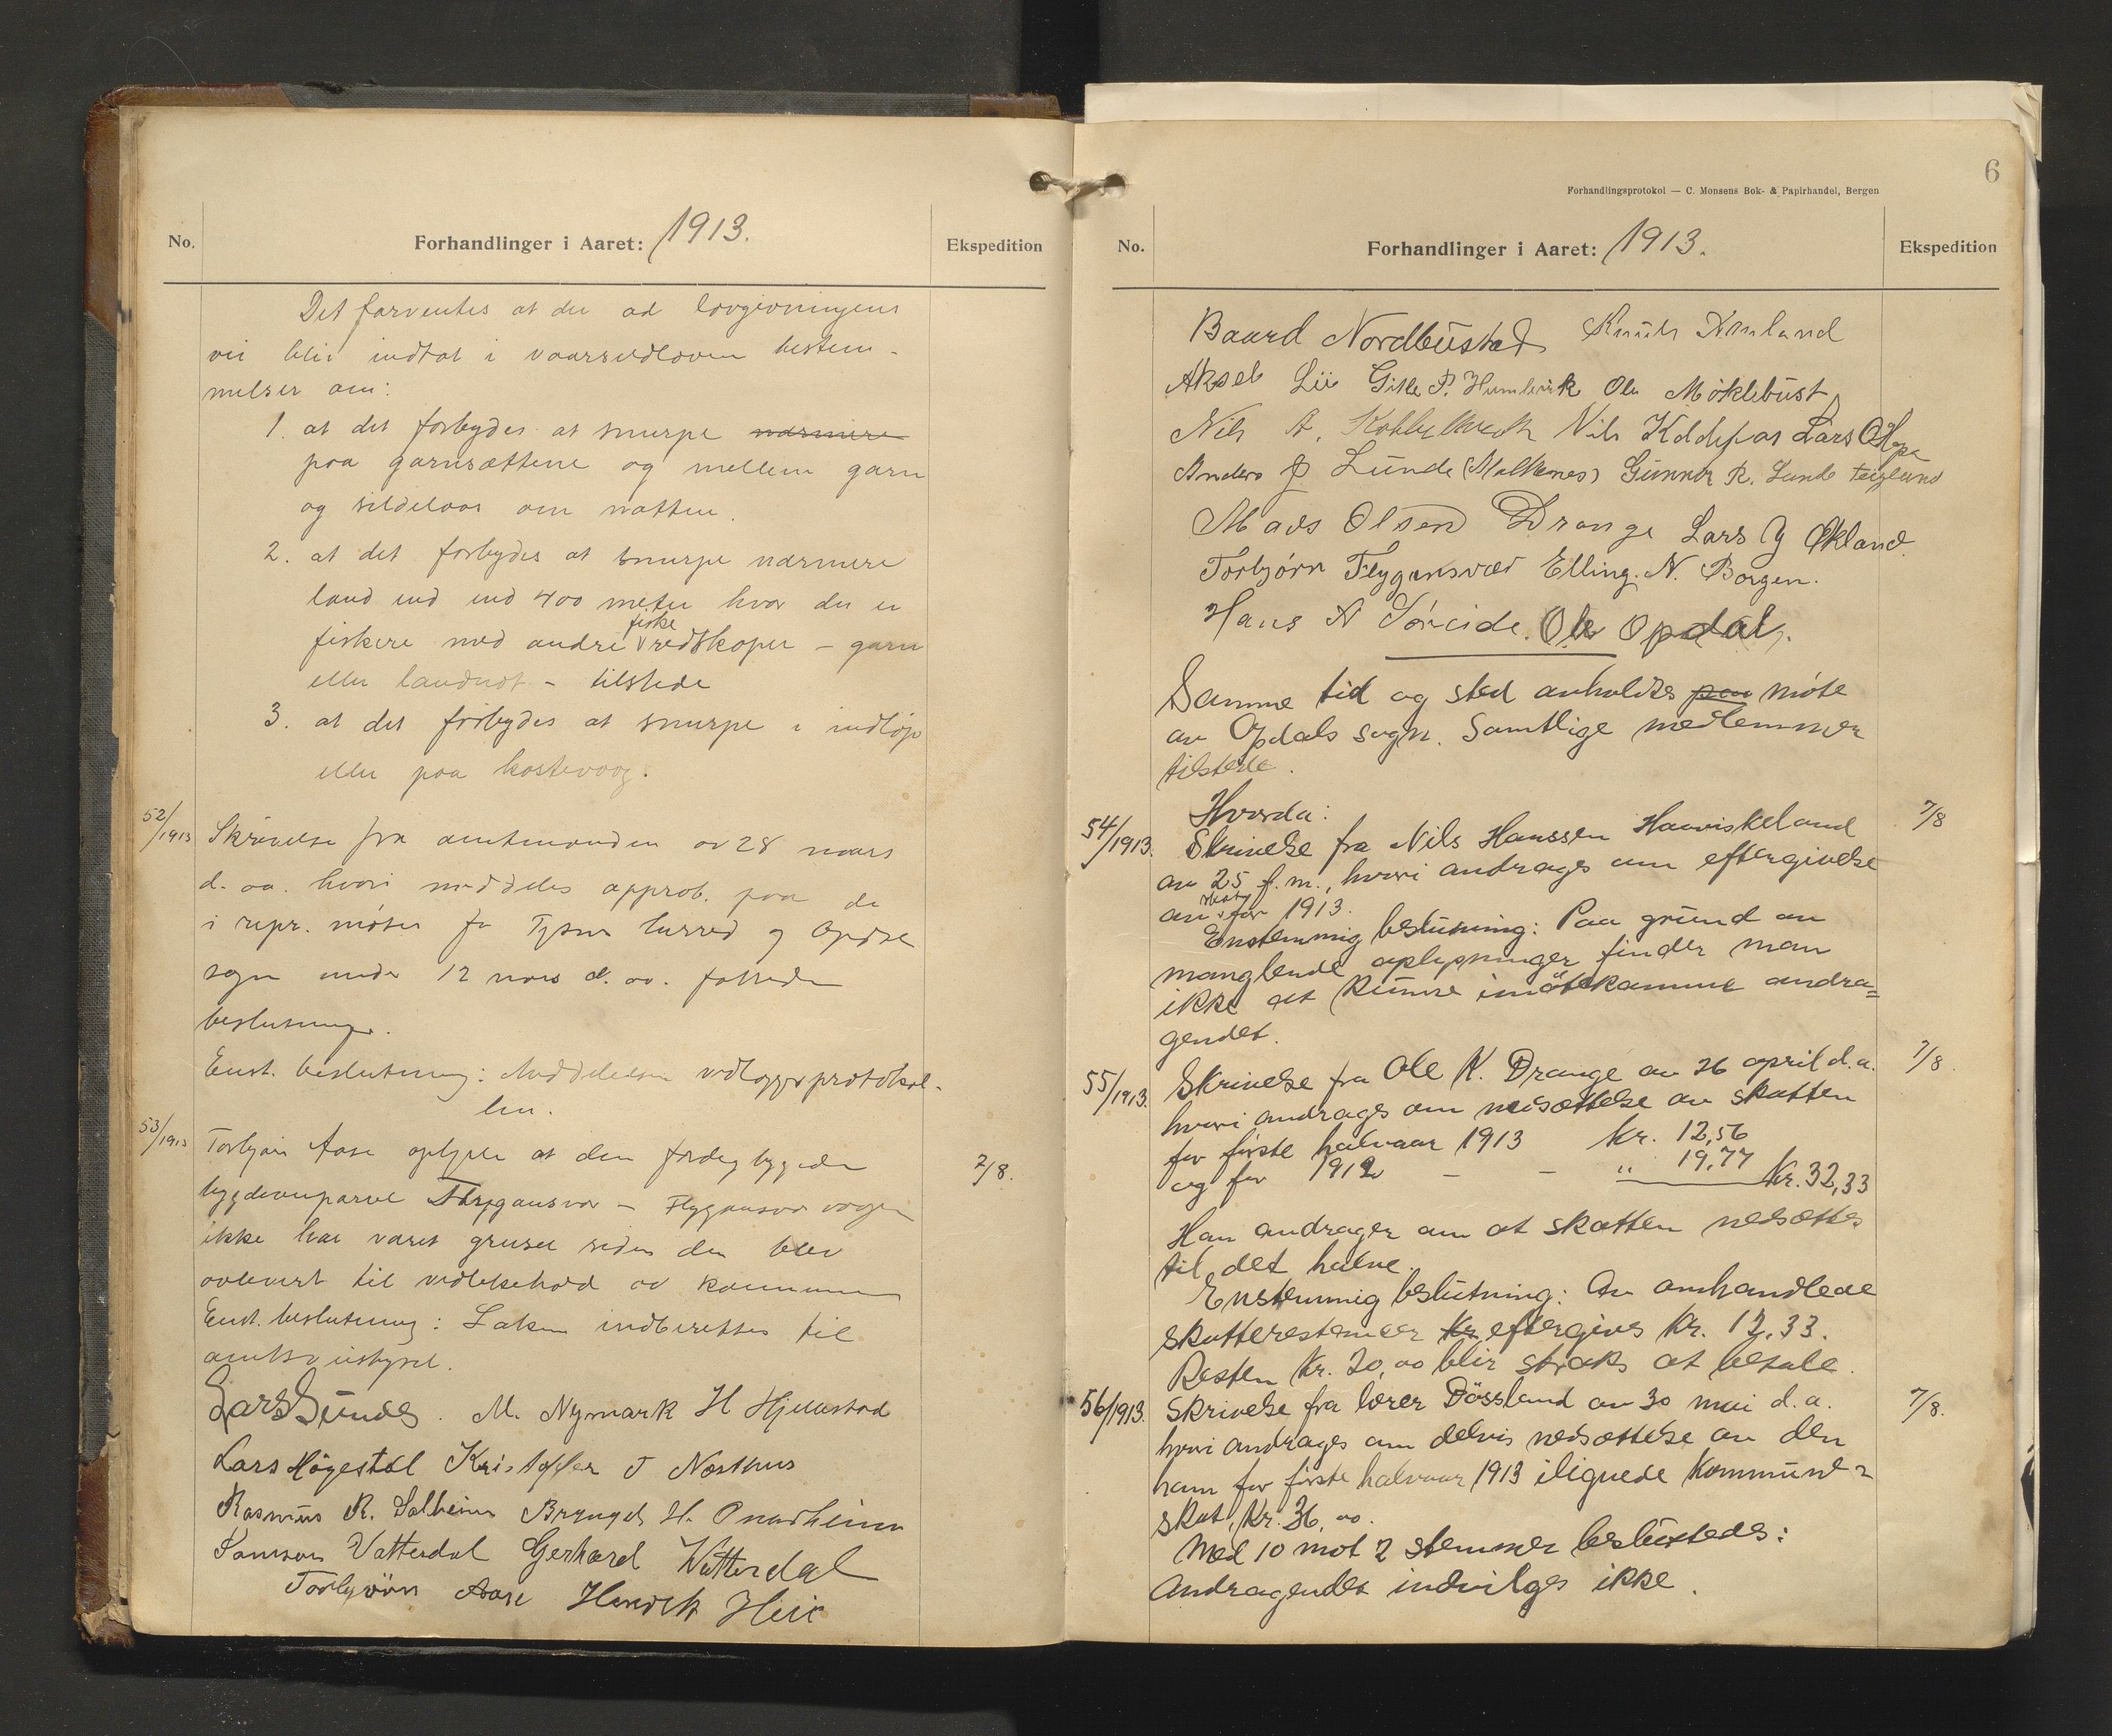 No.
Forhandlinger i Aaret: 1913.
Ekspedition
Det forventes at der ad lovgivningens
vei blir indtat i vaarsildloven bestem-
melser om:
1. at det forbydes at snurpe nærmere
paa garnsættene og mellem garn
og sildelaas om natten.
2. at det forbydes at snurpe nærmere
land end end 400 meter hvor der er
fiskere med andre fiske redskaper - garn
eller landnot - tilstede
3. at det forbydes at snurpe i indløp
eller paa kastevaag.
52/1913 Skrivelse fra amtmanden av 28 mars
d. aa. hvori meddeles approb. paa de
i repr. møter for Tysnes herred og Opdal
sogn under 12 mars d. aa. fattede
beslutninger.
Enst. beslutning: Meddelelsen vedlægges protokol-
len.
53/1913 Torbjørn Aase oplyser at den færdigbyggede 7/8.
bygdeveiparsel Flygansvær - Flygansvær vaagen
ikke har været gruset siden den blev
avlevert til vedlikehold av kommunen
Enst. beslutning: Saken indberettes til
amtsveistyret.
Lars Sunde. M. Nymark H Hjellestad
Lars Høgestøl Kristoffer T Næsthus
Rasmus R. Solheim Brynyel H.
Samson Vatterdal Gerhard Watterdal
Torbjørn Aase Henrik Heie
6
Forhandlingsprotokol — C. Monsens Bok- & Papirhandel, Bergen
No.
Forhandlinger i Aaret: 1913.
Ekspedition
Baard Nordbustad Knut Amland
Aksel Lie Gitle P. Humlevik Ole Møklebust
Nils A. Kobbeltvedt Nils Lars O Hope
Anders J Lunde (Malkenes) Gunnar R. Lunde Teiglund
Mads Olsen Drange Lars J Økland.
Torbjørn Flygansvær Elling. N. Borgen.
Hans A Søreide. Ole Opdal.
Samme tid og sted anholdtes paa møte
av Opdals sogn. Samtlige medlemmer
tilstede.
Hvorda:
54/1913. Skrivelse fra Nils Hanssen Haaviskeland 7/8
av 25 f.m., hvori andrages om eftergivelse
av skat for 1913.
Enstemmig beslutning: Paa grund av
manglende oplysninger finder man
ikke at kunne imøtekomme andra=
gendet.
55/1913. Skrivelse fra Ole K. Drange av 26 april d.a. 7/8.
hvori andrages om nedsættelse av skatten
for første halvaar 1913 Kr. 12,56
og for 1912 - - " 19,77 Kr. 32,33
Han andrager om at skatten nedsættes
til det halve.
Enstemmig beslutning: Av omhandlede
skatterestancer kr eftergives Kr. 12,33.
Resten Kr. 20,00 blir straks at betale.
56/1913. Skrivelse fra lærer Døssland av 30 mai d.a. 7/8.
hvori andrages om delvis nedsættelse av den
ham for første halvaar 1913 ilignede kommune=
skat, Kr. 36,00.
Med 10 mot 2 stemmer besluttedes:
Andragendet indvilges ikke.